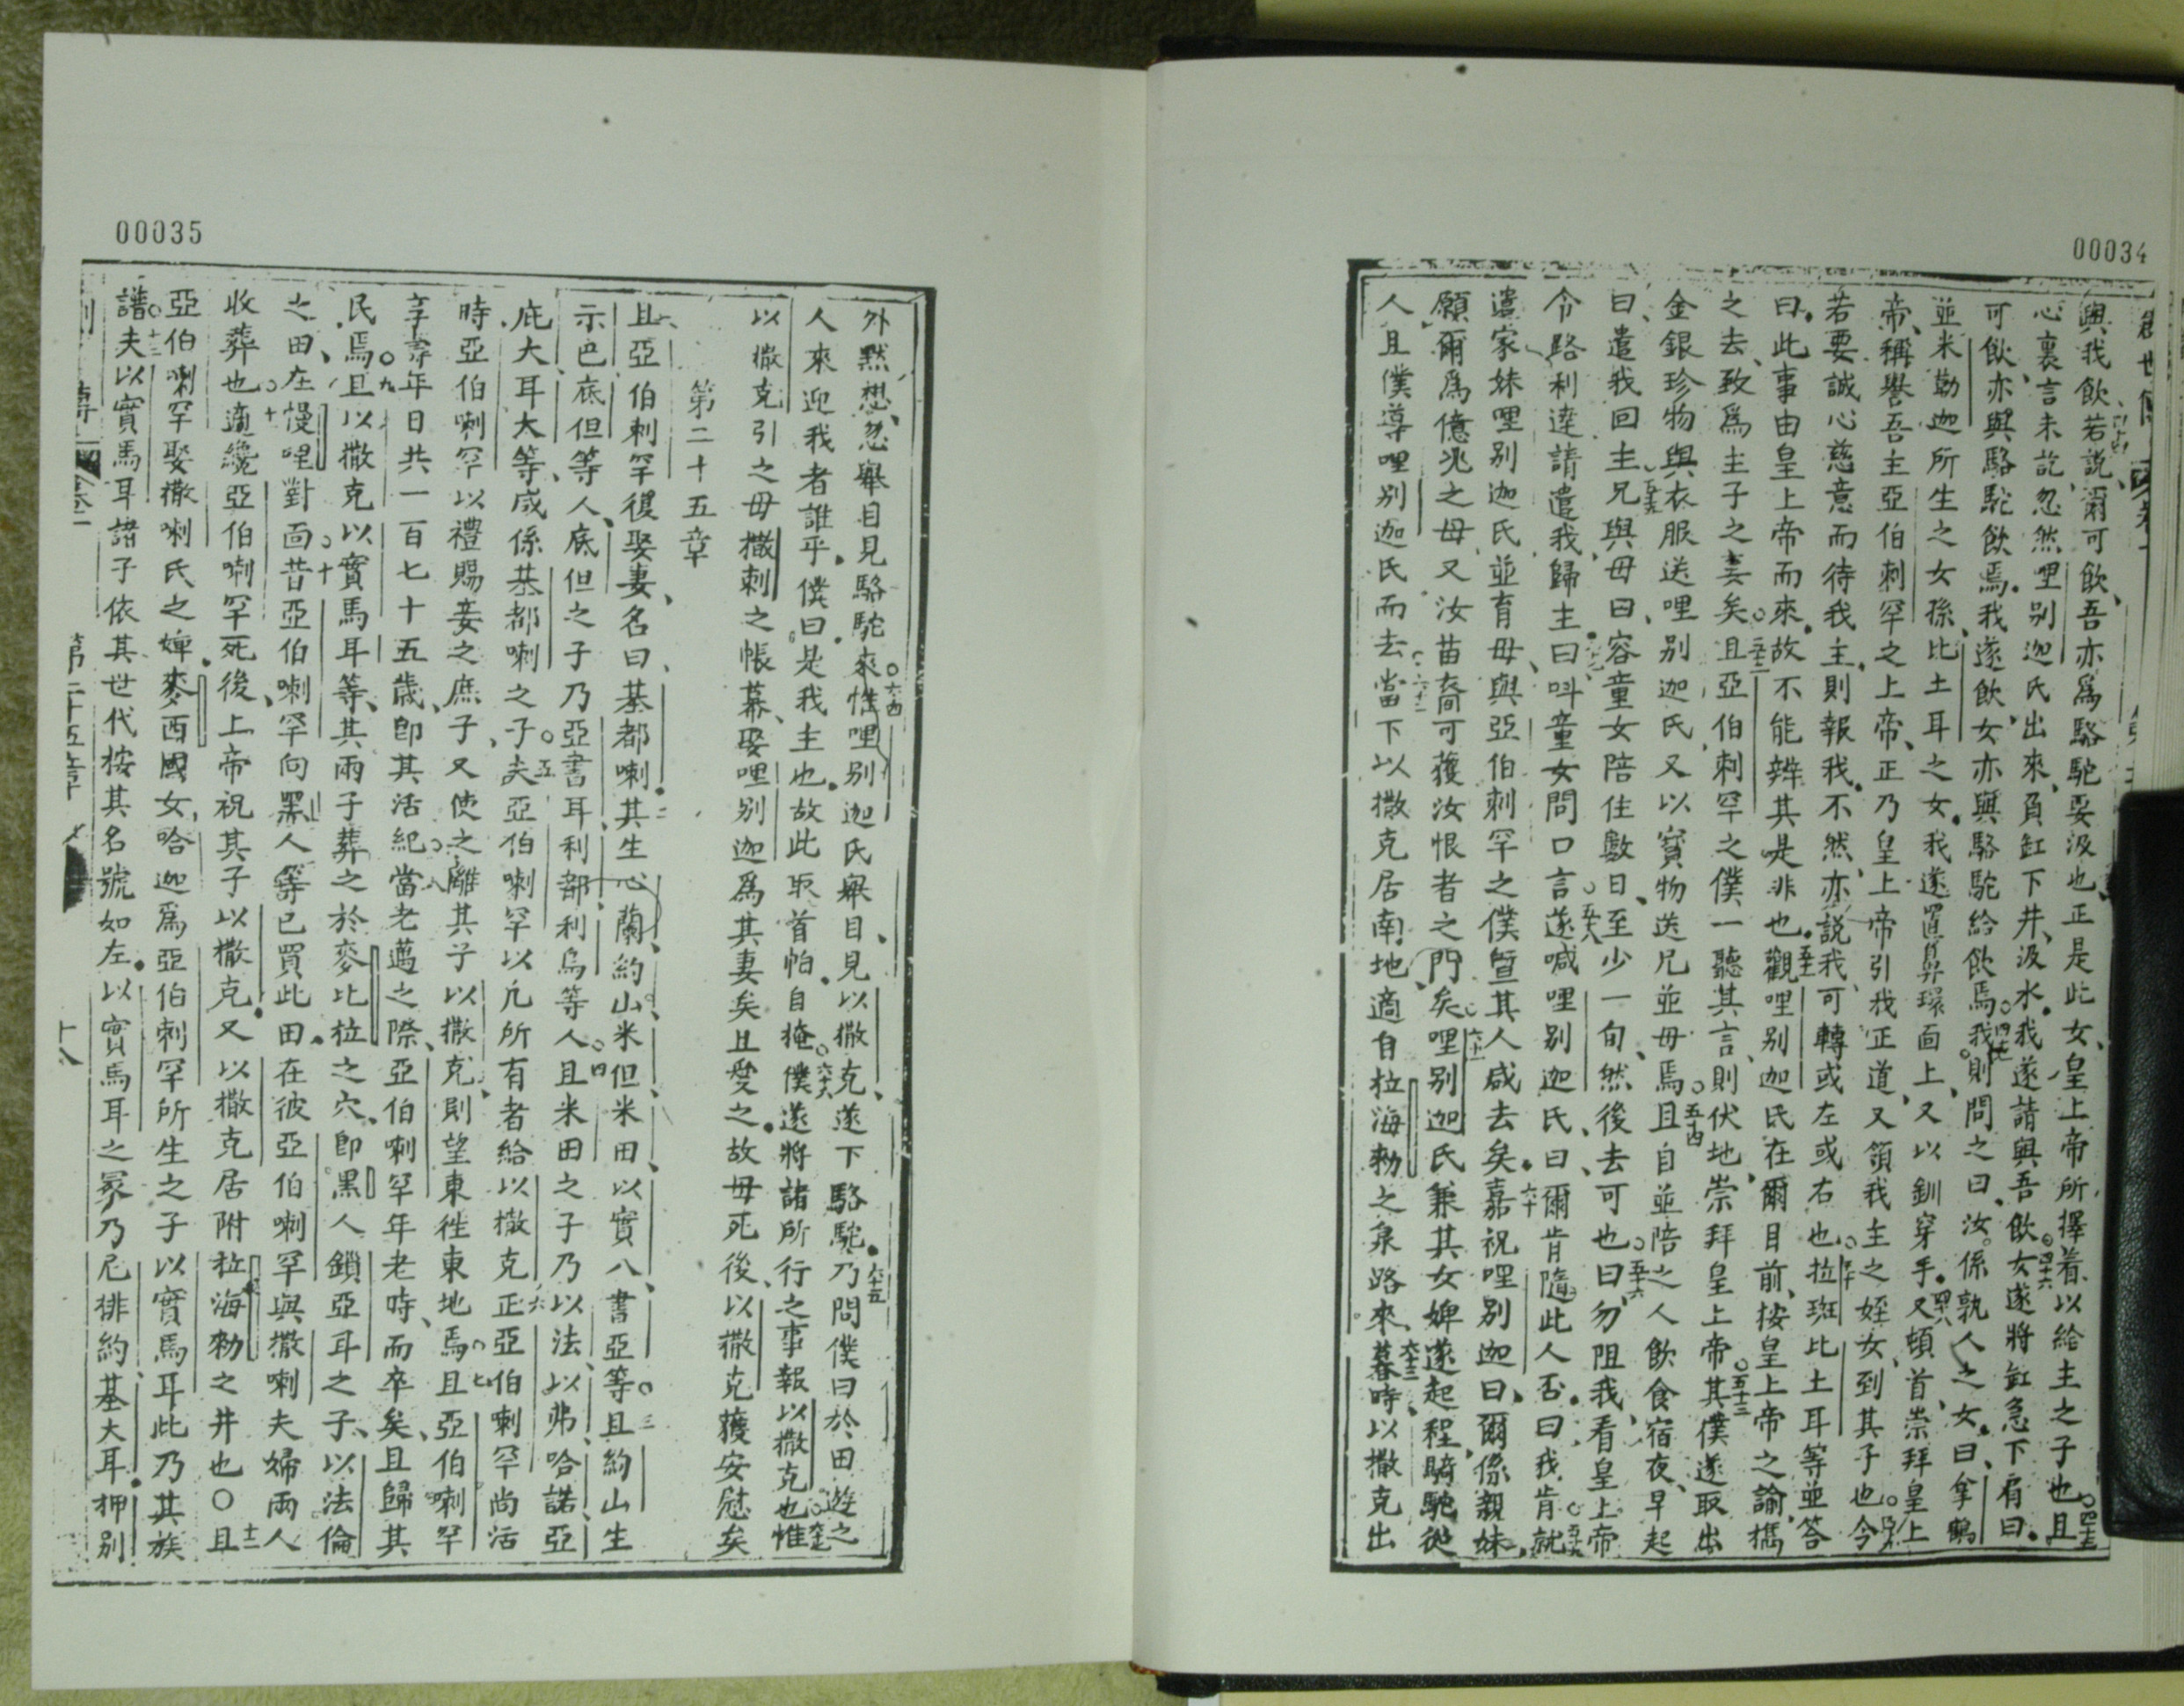 00034
與我飲若說爾可飲吾亦為駱駝要汲也正是此女皇上帝所擇着以給主之子也○四十五且
心裏言未訖忽然哩别迦氏出來負缸下井汲水我遂請與吾飲○四十六女遂將缸急下肩曰
可飲亦與駱駝飲焉我遂飲女亦與駱駝給飲焉○四十七我則問之曰汝係孰人之女曰拿鶴
並米勒迦所生之女孫比土耳之女我遂置鼻環面上又以釧穿手○四十八又頓首崇拜皇上
帝稱譽吾主亞伯剌罕之上帝正乃皇上帝引我正道又領我主之姪女到其子也○四十九今
若要誠心慈意而待我主則報我不然亦說我可轉或左或右也○五十拉班比土耳等並答
曰此事由皇上帝而來故不能辨其是非也○五十一觀哩别迦氏在爾目前按皇上帝之諭攜
之去致為主子之妻矣○五十二且亞伯剌罕之僕一聽其言則伏地崇拜皇上帝○五十三其僕遂取出
金銀珍物與衣服送哩别迦氏又以寶物送兄並母焉○五十四且自並陪之人飲食宿夜早起
曰遣我回主○五十五兄與母曰容童女陪住數日至少一旬然後去可也○五十六曰勿阻我看皇上帝
令路利達請遣我歸主○五十七曰呌童女問口言○五十八遂喊哩别迦氏曰爾肯隨此人否曰我肯就○五十九
遣家妹哩别迦氏並育母與亞伯剌罕之僕曁其人咸去矣○六十嘉祝哩别迦曰爾係親妹
願爾為億兆之母又汝苗裔可獲汝恨者之門矣○六十一哩别迦氏兼其女婢遂起程騎駝從
人且僕導哩别迦氏而去○六十二當下以撒克居南地適自拉海勑之泉路來○六十三暮時以撒克出
00035
外黙想忽舉目見駱駝來○六十四惟哩别迦氏舉目見以撒克遂下駱駝○六十五乃問僕曰於田遊之
人來迎我者誰乎僕曰是我主也故此取首帕自掩○六十六僕遂將諸所行之事報以撒克也○六十七惟
以撒克引之毋撒剌之帳幕娶哩别迦為其妻矣且愛之故毋死後以撒克獲安慰矣
第二十五章
且亞伯剌罕復娶妻名曰基都喇○二其生心蘭約山米但米田以實八書亞等○三且約山生
示巴底但等人底但之子乃亞書耳利都利烏等人○四且米田之子乃以法以弗哈諾亞
庇大耳大等咸係基都喇之子○五夫亞伯喇罕以凡所有者給以撒克○六正亞伯喇罕尚活
時亞伯喇罕以禮賜妾之庶子又使之離其子以撒克則望東徃東地焉○七且亞伯喇罕
享壽年日共一百七十五歲即其活紀○八當老邁之際亞伯喇罕年老時而卒矣且歸其
民焉○九且以撒克以實馬耳等其兩子葬之於麥比拉之穴即黑人鎖亞耳之子以法倫
之田在慢哩對面○十昔亞伯喇罕向黑人等已買此田在彼亞伯喇罕與撒喇夫婦兩人
收葬也○十一適纔亞伯喇罕死後上帝祝其子以撒克又以撒克居附拉海勑之井也○十二且
亞伯喇罕娶撒喇氏之婢麥西國女哈迦為亞伯剌罕所生之子以實馬耳此乃其族
譜○十三夫以實馬耳諸子依其世代按其名號如左以實馬耳之冢乃尼排約基大耳押別
第二十五章
十八